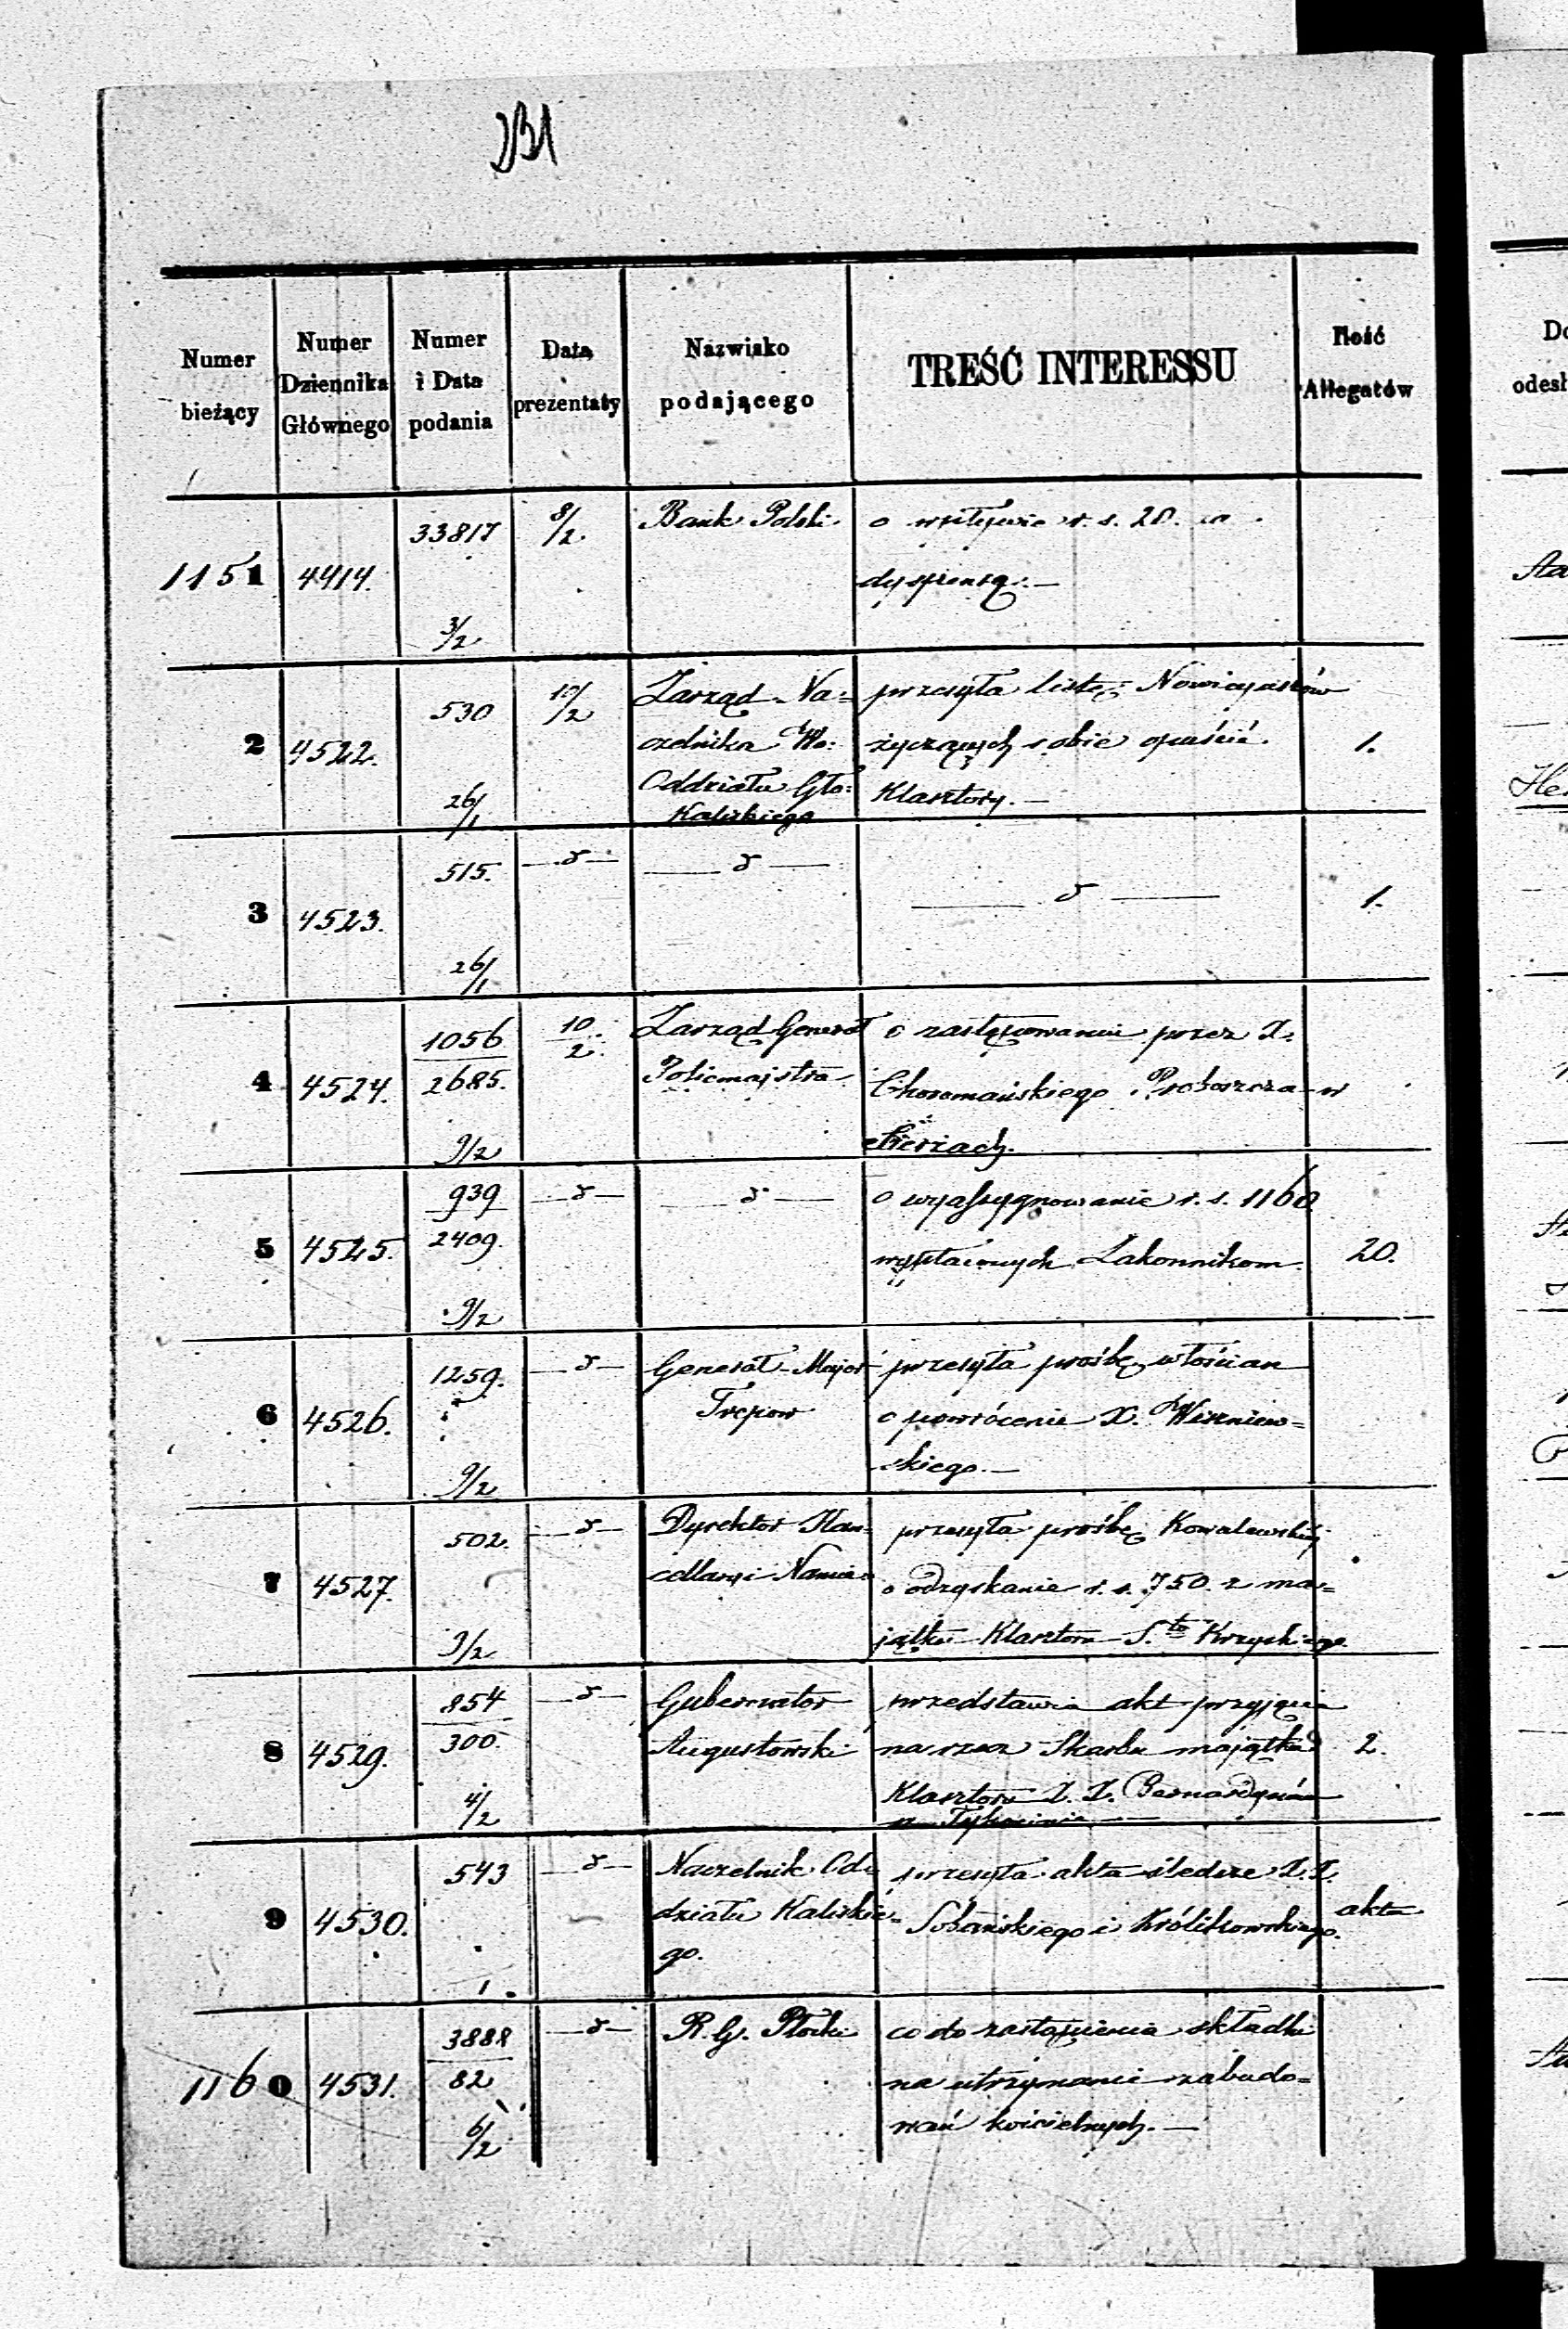 131
Numer bieżący
Numer Dziennika Głównego
Numer i Data podania
Data prezentaty
Nazwisko podającego
TREŚĆ INTERESSU
Ilość Allegatów
1151 4414. 33817 3/2 8/2 Bank Polski o wpływie r. s. 20. za
dyspensą.—
2 4522. 530 26/1 10/2 Zarząd Na= przesyła listę Nowicyuszów 1.
czelnika Wo: życzących sobie opuścić
Oddziału Gło: Klasztory.—
Kaliskiego
3 4523. 515. 26/1 —δ— —δ— —δ— 1.
4 4524. 1056 2685. 9/2 10/2 Zarząd Generał o zastępowaniu przez X.
Policmajstra Choromańskiego Proboszcza w
5 4525. 939 2409. 9/2 —δ— —δ— o wyassygnowanie r. s. 1160
wypłaconych Zakonnikom. 20.
6 4526. 1259. 9/2 —δ— Generał-Major przesyła prośbę włościan
Trepow o powrócenie X. Wiszniew=
skiego.—
7 4527. 502. 9/2 —δ— Dyrektor Kan= przesyła prośbę Kowalewskiéj
cellaryi Namie= o odzyskanie r. s. 750. z ma=
jątku Klasztoru S.to Krzyskiego.
8 4529. 854 300. 4/2 —δ— Gubernator przedstawia akt przyjęcia
Augustowski na rzecz Skarbu majątku 2.
Klasztoru X. X. Bernardynów
w Tykocinie —
9 4530. 543 1. —δ— Naczelnik Od= przesyła akta śledcze X. X.
działu Kaliskie= Sobańskiego i Królikowskiego. akta
go.
1160 4531. 3888 82 6/2 —δ— R. G. Płocki co do zastąpienia składki
na utrzymanie zabudo=
wań kościelnych.—
Do
odesł